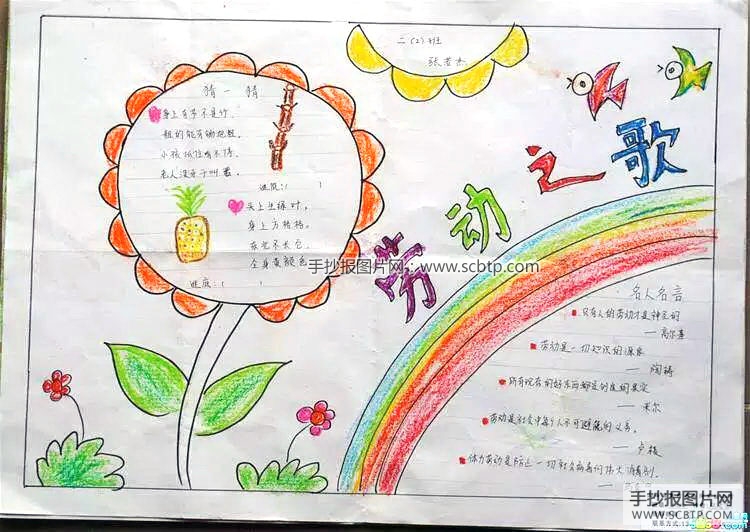 二(2)班
张若杰
劳动之歌
猜一猜
身上有节不是竹,
粗的能有锄把粗,
小孩抓住啃不停,
老人没牙干叫苦。
谜底:( )
头上生绿叶,
身上方格格,
全身黄颜色
谜底:( )
名人名言
只有人的劳动才是神圣的
——高尔基
劳动是一切知识的源泉
——陶铸
所有现存的好东西都是创造的果实
——米尔
劳动是社会中每个人不可避免的义务。
——卢梭
体力劳动是防止一切社会病毒的伟大消毒剂。
手抄报图片网:www.scbtp.com
手抄报图片网
WWW.SCBTP.COM